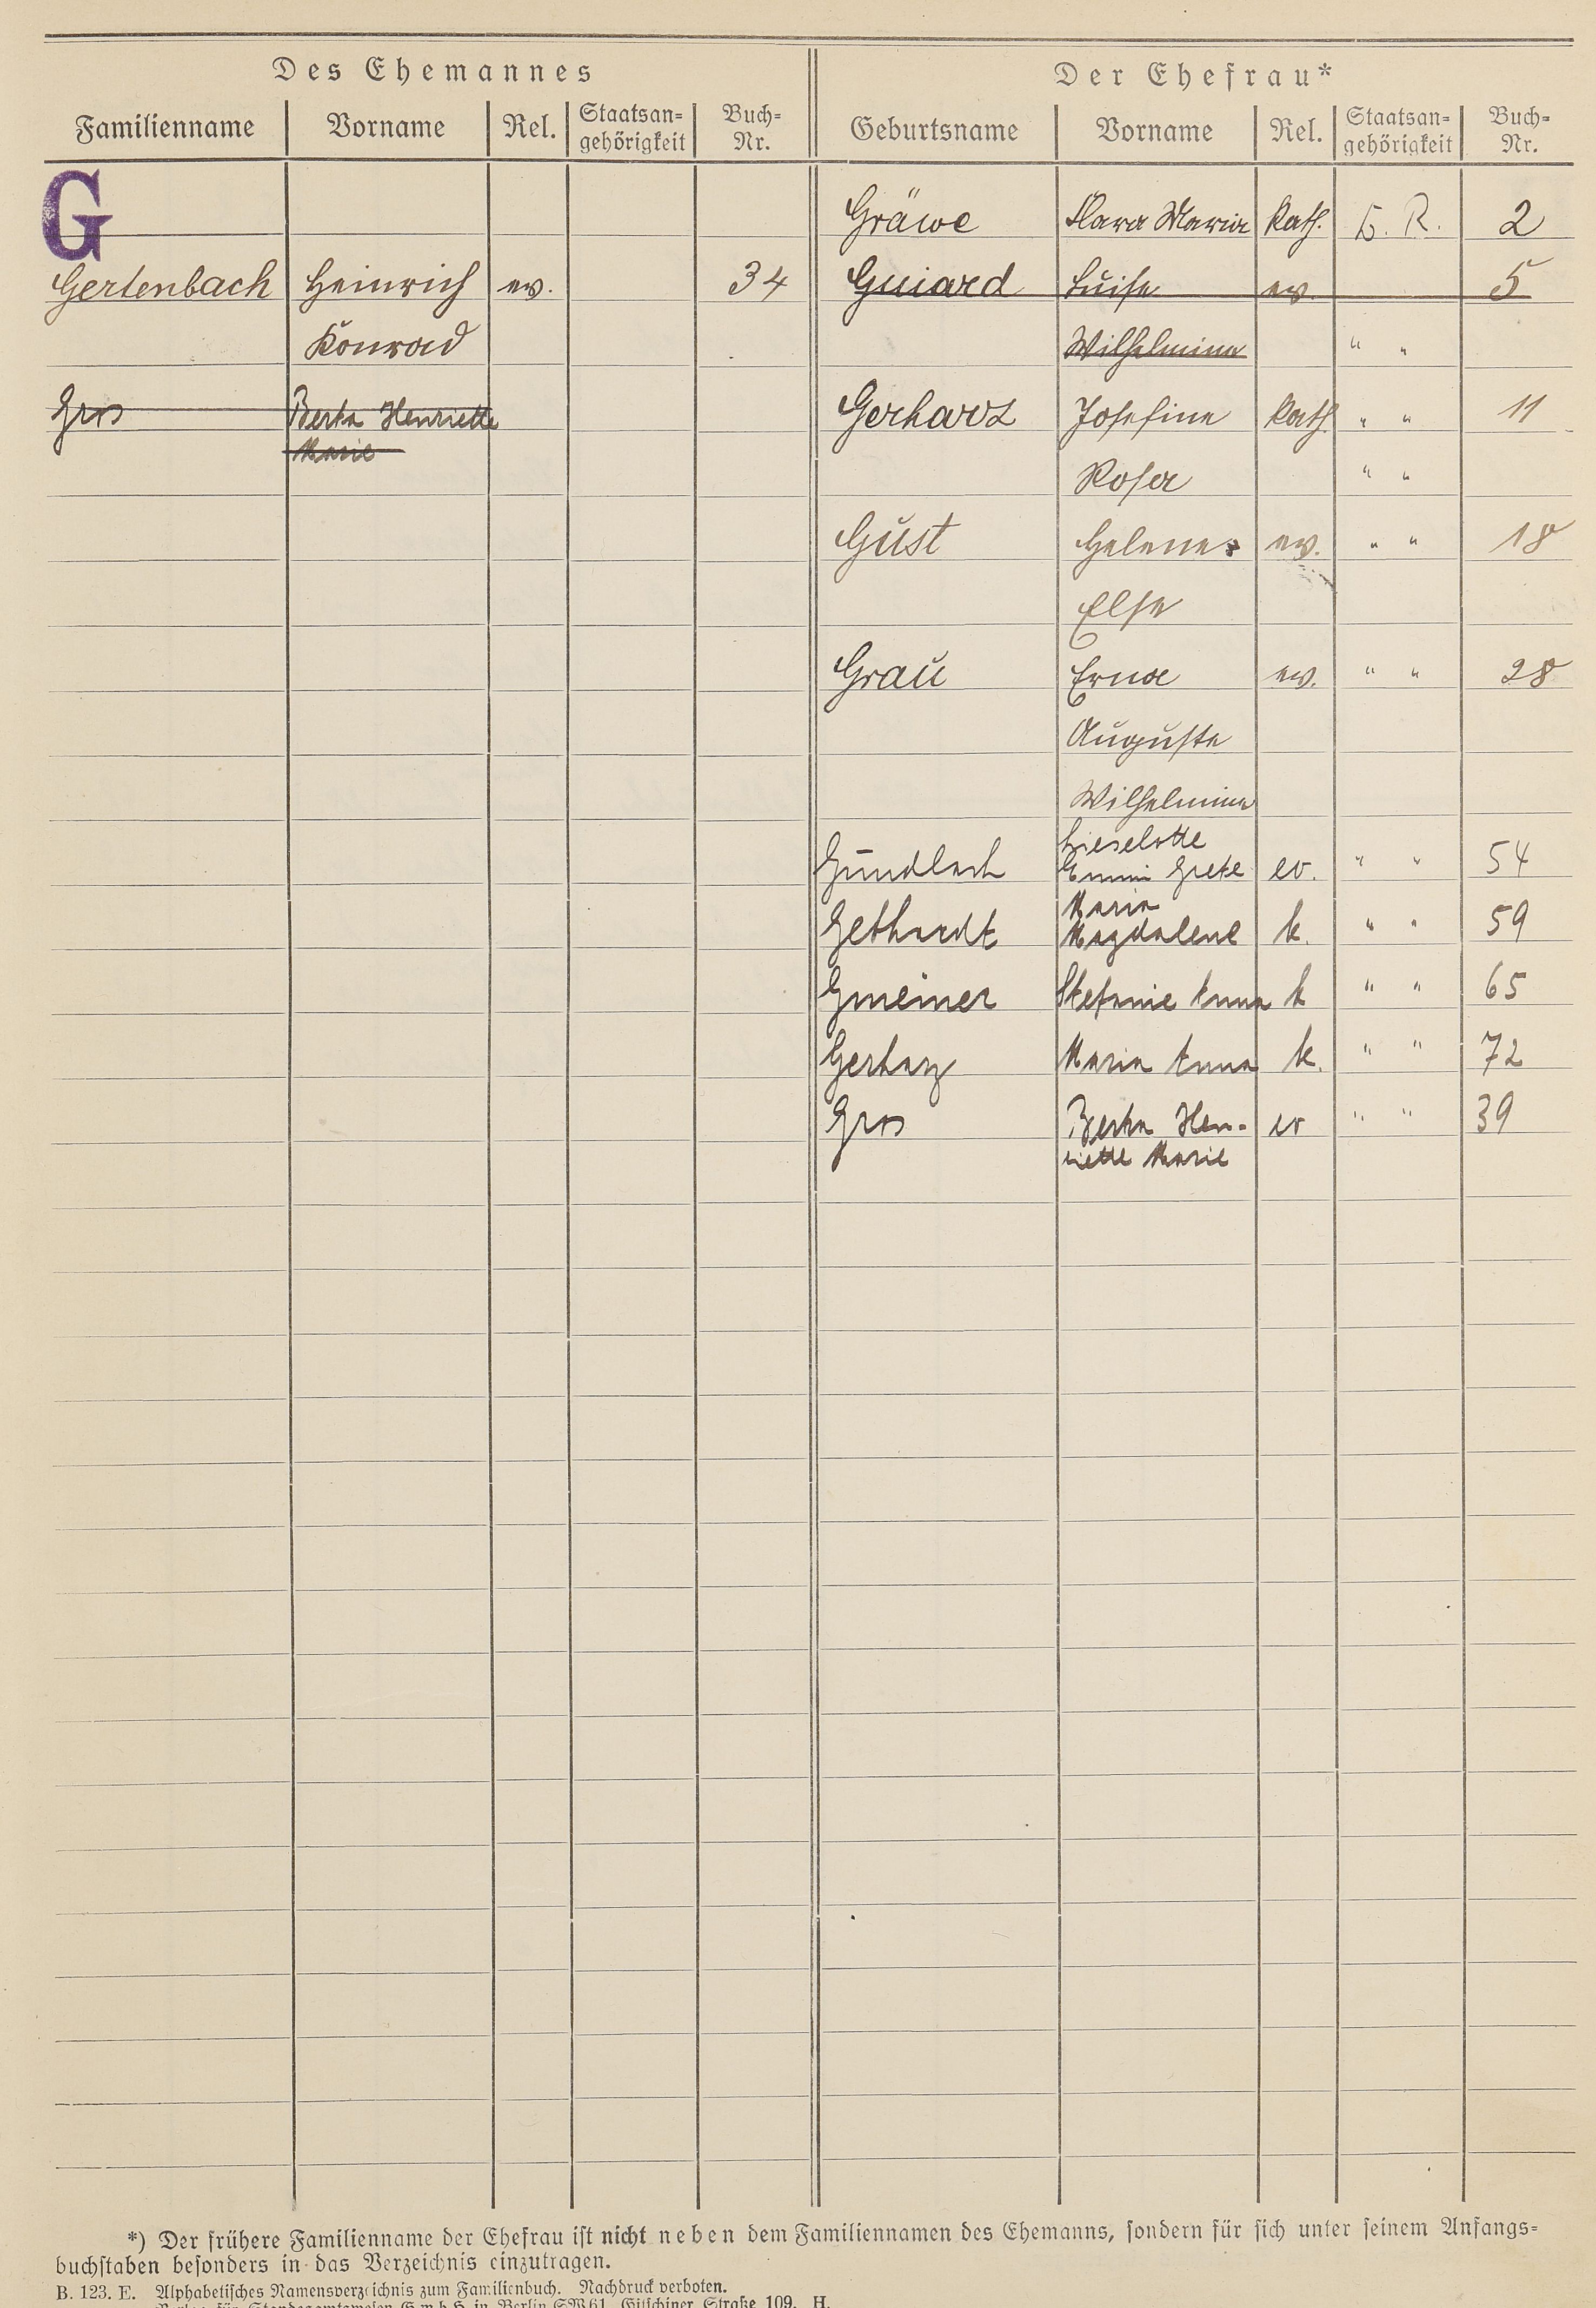 Des Ehemannes
Der Ehefrau*
Familienname Vorname Rel. Staatsan-gehörigkeit Buch-Nr. Geburtsname Vorname Rel. Staatsan-gehörigkeit Buch-Nr.
G
Gräwe Klara Maria kath. D. R. 2
Gertenbach Heinrich ev. 34 Guiard Luise ev. 5
Konrad Wilhelmine " "
Gros Berta Henriette Gerharz Josefine kath. " " 11
Marie
Rosa " "
Gust Helene ev. " " 18
Else
Grau Erna ev. " " 28
Auguste
Wilhelmine
Lieselotte
Gundlach Emmi Grete ev. " " 54
Maria
Gebhardt Magdalene k. " " 59
Gmeiner Stefanie Anna k " " 65
Gerharz Maria Anna k. " " 72
Gros Berta Hen- ev " " 39
riette Marie
*) Der frühere Familienname der Ehefrau ist nicht neben dem Familiennamen des Ehemanns, sondern für sich unter seinem Anfangs-
buchstaben besonders in das Verzeichnis einzutragen.
B. 123. E. Alphabetisches Namensverzeichnis zum Familienbuch. Nachdruck verboten.
Verlag für Standesamtswesen G.m.b.H. in Berlin SW 61, Gitschiner Straße 109. H.